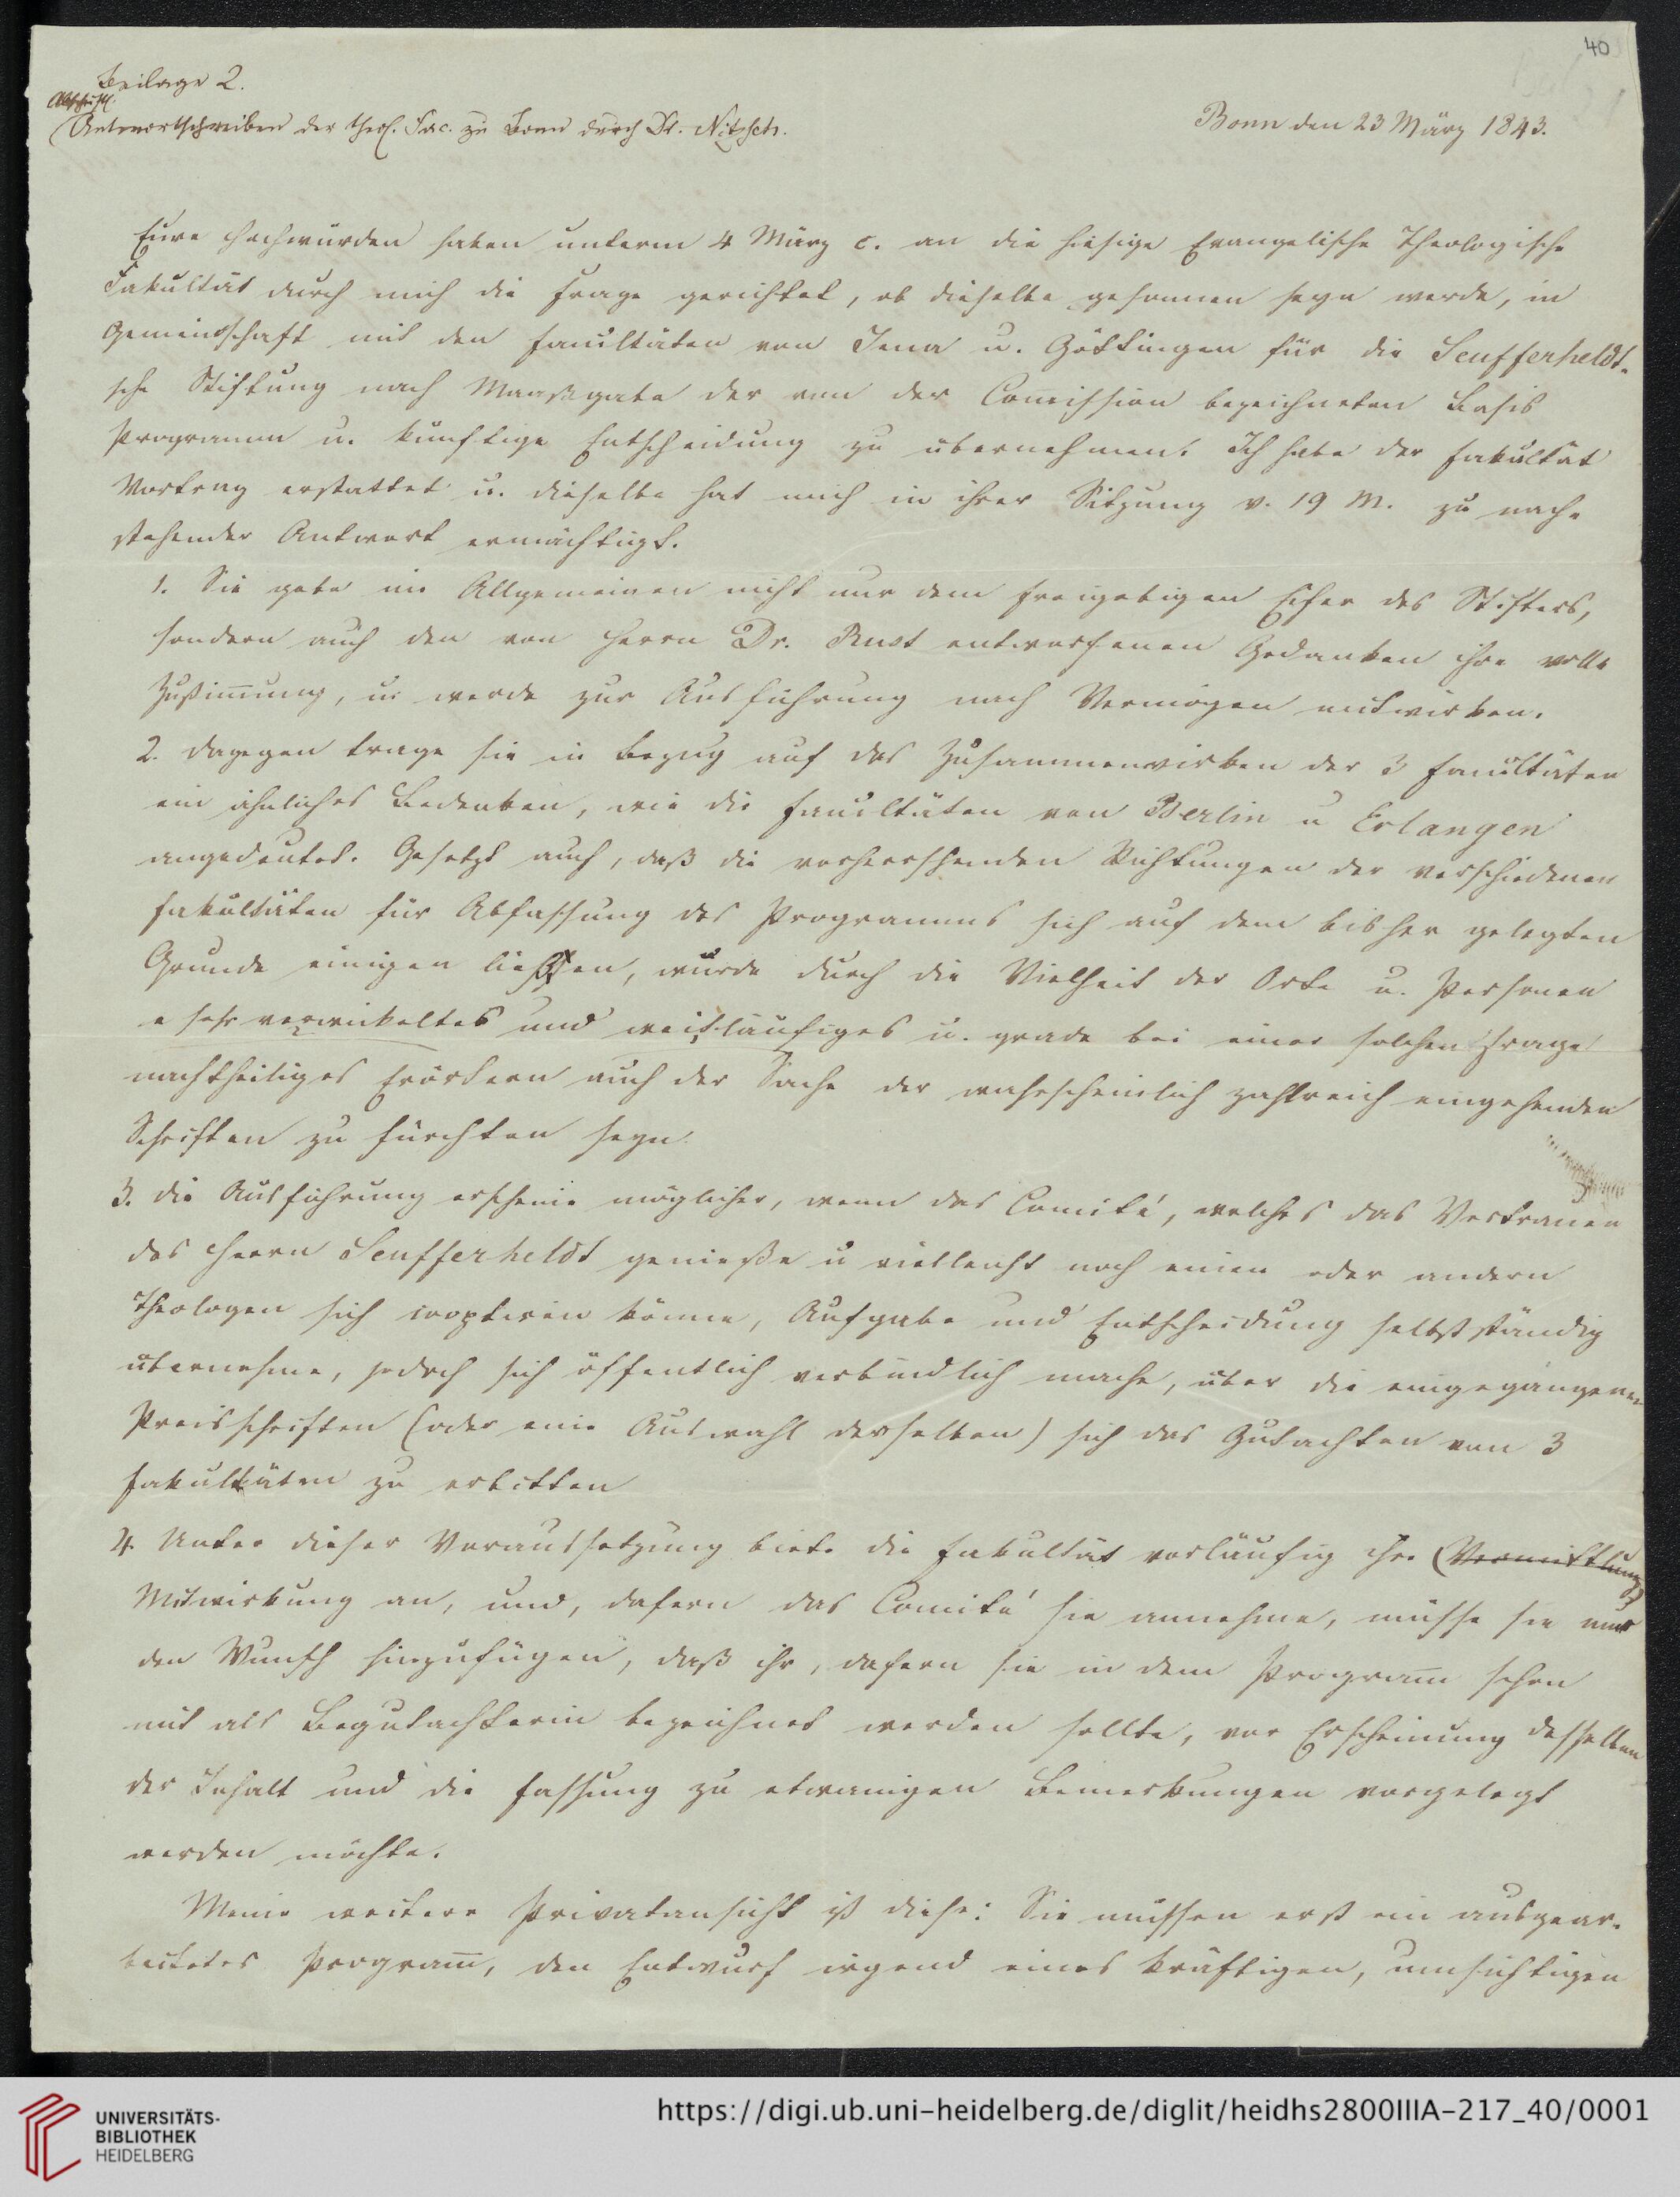 40
Beilage 2.
Abschrift.
Antwortschreiben der theol. Fac. zu Bonn durch Dr. Nitzsch.
Bonn den 23 März 1843.
Eure Hochwürden haben unterm 4 März c. an die hiesige Evangelische Theologische
Fakultät durch mich die Frage gerichtet, ob dieselbe gesonnen seyn werde, in
Gemeinschaft mit den Facultäten von Jena u. Göttingen für die Seufferheldt-
sche Stiftung nach Maaßgabe der von der Com̄ission bezeichneten Basis
Programm u. künftige Entscheidung zu übernehmen. Ich habe der Fakultät
Vortrag erstattet u. dieselbe hat mich in ihrer Sitzung v. 19 M. zu nach-
stehender Antwort ermächtigt.
1. Sie gebe im Allgemeinen nicht nur dem freigebigen Eifer des Stifters,
sondern auch den von Herrn Dr. Rust entworfenen Gedanken ihre volle
Zustim̄ung, u. werde zur Ausführung nach Vermögen mitwirken.
2. dagegen trage sie in Bezug auf das Zusammenwirken der 3 Facultäten
ein ähnliches Bedenken, wie die Facultäten von Berlin u Erlangen
angedeutet. Gesetzt auch, daß die vorherrschenden Richtungen der verschiedenen
Fakultäten für Abfassung des Programms sich auf dem bisher gelegten
Grunde einigen ließen, würde durch die Vielheit der Orte u. Personen
e sehr verwickeltes und weitläufiges u. grade bei einer solchen Frage
nachtheiliges Erörtern auch der Sache der wahrscheinlich zahlreich eingehenden
Schriften zu fürchten seyn.
3. die Ausführung erscheine möglicher, wenn das Comité, welches das Vertrauen
des Herrn Seufferheldt genieße u vielleicht noch einen oder andern
Theologen sich cooptiren könne, Aufgabe und Entscheidung selbstständig
übernehme, jedoch sich öffentlich verbindlich mache, über die eingegangenen
Preisschriften (oder eine Auswahl derselben) sich das Gutachten von 3
Fakultäten zu erbitten
4. Unter dieser Voraussetzung biete die Fakultät vorläufig ihre (Vermittlung)
Mitwirkung an, und, dafern das Comité sie annehme, müsse sie nur
den Wunsch hinzufügen, daß ihr, dafern sie in dem Program̄ schon
mit als Begutachterin bezeichnet werden sollte, vor Erscheinung desselben
der Inhalt und die Fassung zu etwanigen Bemerkungen vorgelegt
werden möchte.
Meine weitere Privatansicht ist diese: Sie müssen erst ein ausgear-
beitetes Program̄, den Entwurf irgend eines kräftigen, umsichtigen
UNIVERSITÄTS-
BIBLIOTHEK
HEIDELBERG
https://digi.ub.uni-heidelberg.de/diglit/heidhs2800IIIA-217_40/0001